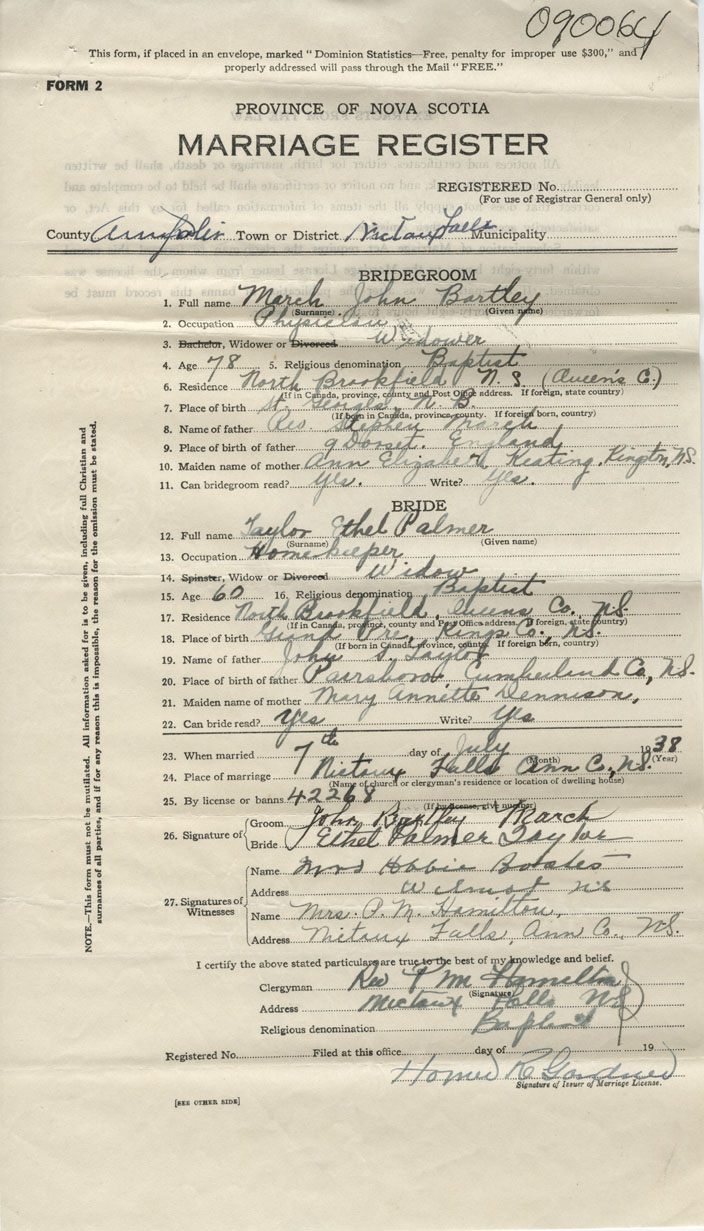 090064
This form, if placed in an envelope, marked "Dominion Statistics—Free, penalty for improper use $300," and
properly addressed will pass through the Mail "FREE."
FORM 2
PROVINCE OF NOVA SCOTIA
MARRIAGE REGISTER
REGISTERED No.
(For use of Registrar General only)
County Annapolis Town or District Nictaux Falls Municipality
BRIDEGROOM
1. Full name March John Bartley
(Surname) (Given name)
2. Occupation Physician
3. Bachelor, Widower or Divorced Widower
4. Age 78 5. Religious denomination Baptist
6. Residence North Brookfield N.S (Queen's C.)
(If in Canada, province, county and Post Office address. If foreign, state country)
7. Place of birth St. N.B.
(If born in Canada, province, county. If foreign born, country)
8. Name of father Rev. Stephen March
9. Place of birth of father Dorset, England
10. Maiden name of mother Ann Elizabeth Keating, N.S.
11. Can bridegroom read? Yes. Write? Yes.
BRIDE
12. Full name Taylor Ethel Palmer
(Surname) (Given name)
13. Occupation Homekeeper
14. Spinster, Widow or Divorced Widow
15. Age 60 16. Religious denomination Baptist
17. Residence North Brookfield, Queens Co. N.S.
(If in Canada, province, county and Post Office address. If foreign, state country)
18. Place of birth Grand Pre, Kings Co., N.S.
(If born in Canada, province, county. If foreign born, country)
19. Name of father John S. Taylor
20. Place of birth of father Parrsboro Cumberland Co, N.S.
21. Maiden name of mother Mary Annette Dennison,
22. Can bride read? Yes Write? Yes
23. When married 7th day of July 1938
(Month) (Year)
24. Place of marriage Nictaux Falls Ann Co., N.S.
(Name of church or clergyman's residence or location of dwelling house)
25. By license or banns 42268
(If by license, give number)
26. Signature of Groom John Bartley March
Bride Ethel Palmer Taylor
27. Signatures of Witnesses
Name Mrs
Address Wilmot NS
Name Mrs. P. M. Hamilton,
Address Nictaux Falls, Ann Co., N.S.
I certify the above stated particulars are true to the best of my knowledge and belief.
Clergyman Rev P M Hamilton
(Signature)
Address Nictaux Falls NS
Religious denomination Baptist
Registered No. Filed at this office day of 19
Homer R Gardner
Signature of Issuer of Marriage License.
[SEE OTHER SIDE]
NOTE.—This form must not be mutilated. All information asked for is to be given, including full Christian and
surnames of all parties, and if for any reason this is impossible, the reason for the omission must be stated.